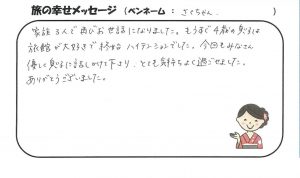 旅の幸せメッセージ (ペンネーム : さくちゃん )
家族3人で再びお世話になりました。もうすぐ4歳の息子は
旅館が大好きで終始ハイテンションでした。今回もみなさん
優しく息子に話しかけて下さり、とても気持ちよく過ごせました。
ありがとうございました。